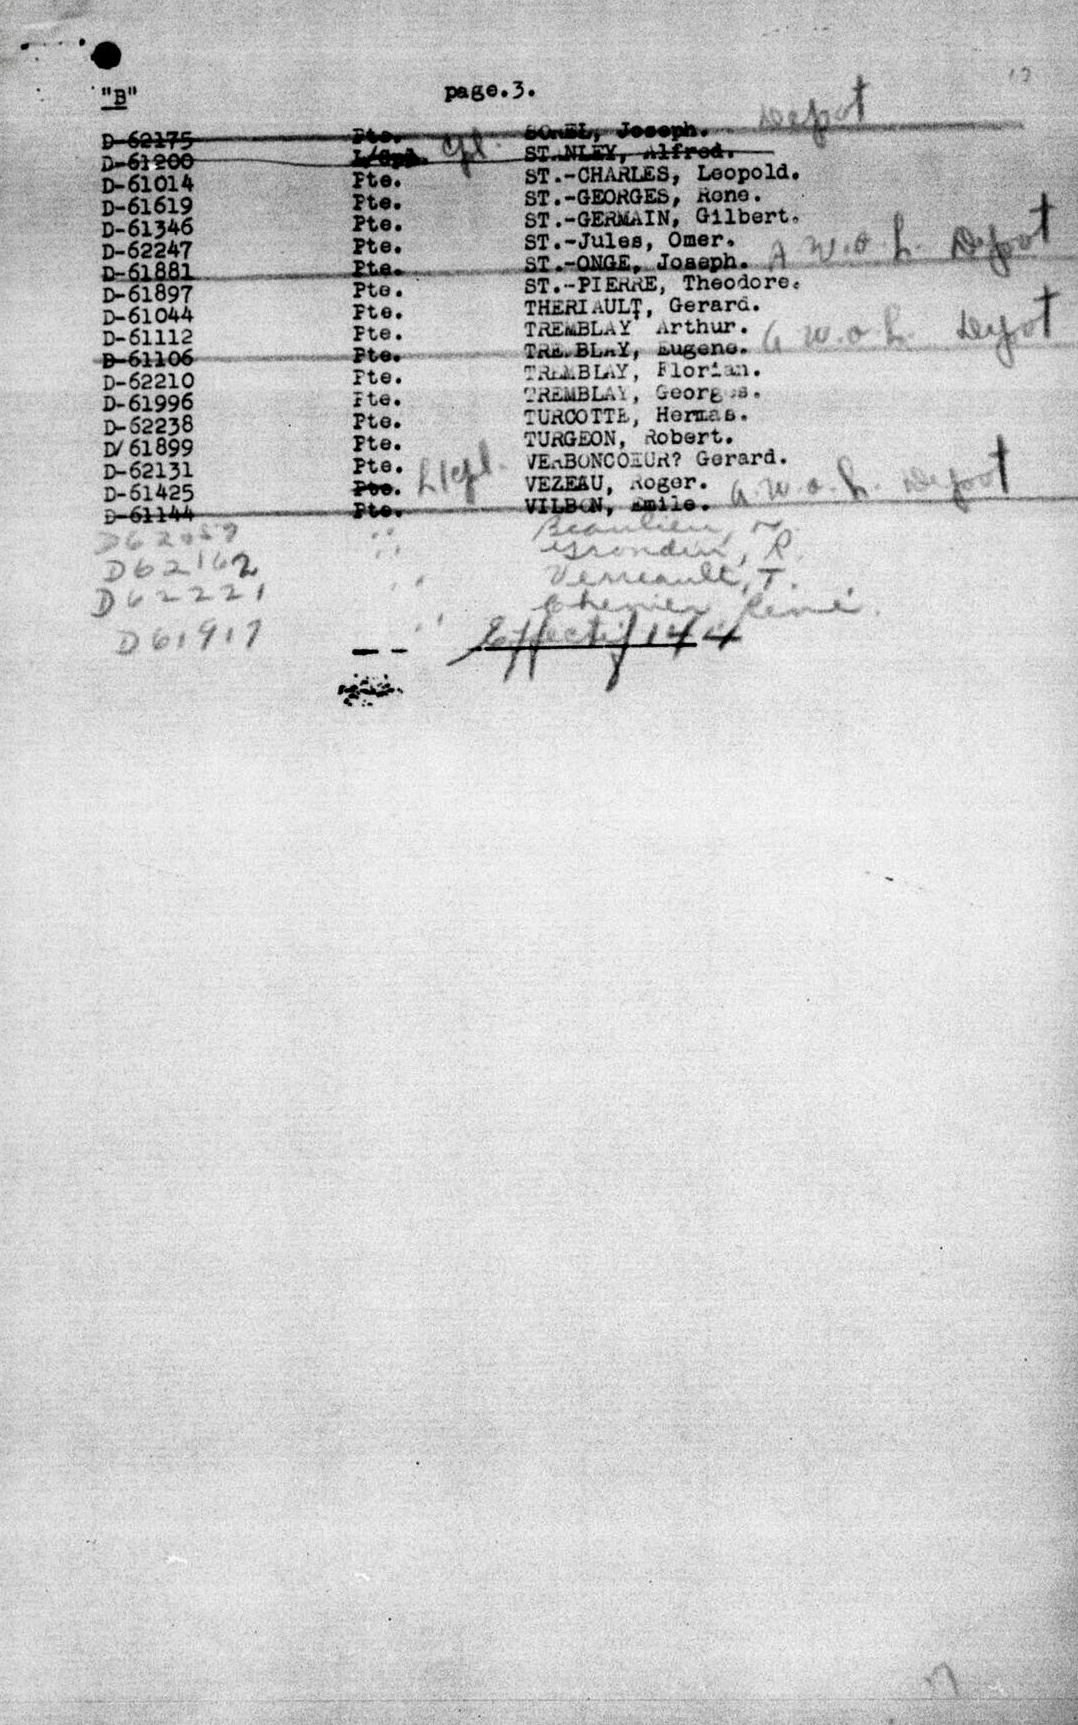 "B" page.3. 13
D-62175 Pte. SOREL, Joseph. Depot
D-61200 L/Cpl. Cpl. STANLEY, Alfred.
D-61014 Pte. ST.-CHARLES, Leopold.
D-61619 Pte. ST.-GEORGES, Rene.
D-61346 Pte. ST.-GERMAIN, Gilbert.
D-62247 Pte. ST.-Jules, Omer.
D-61881 Pte. ST.-ONGE, Joseph. A.W.O.L. Depot
D-61897 Pte. ST.-PIERRE, Theodore.
D-61044 Pte. THERIAULT, Gerard.
D-61112 Pte. TREMBLAY Arthur.
D-61106 Pte. TREMBLAY, Eugene. A.W.O.L. Depot
D-62210 Pte. TREMBLAY, Florian.
D-61996 Pte. TREMBLAY, Georges.
D-62238 Pte. TURCOTTE, Hermas.
D/61899 Pte. TURGEON, Robert.
D-62131 Pte. VERBONCOEUR? Gerard.
D-61425 Pte. L/Cpl. VEZEAU, Roger.
D-61144 Pte. VILBON, Emile. A.W.O.L. Depot
D62059 " Beaulieu,
D62162 " Grondin, R.
D62221 " Verreault, T.
D61917 " Chenier, René.
Effectif 144